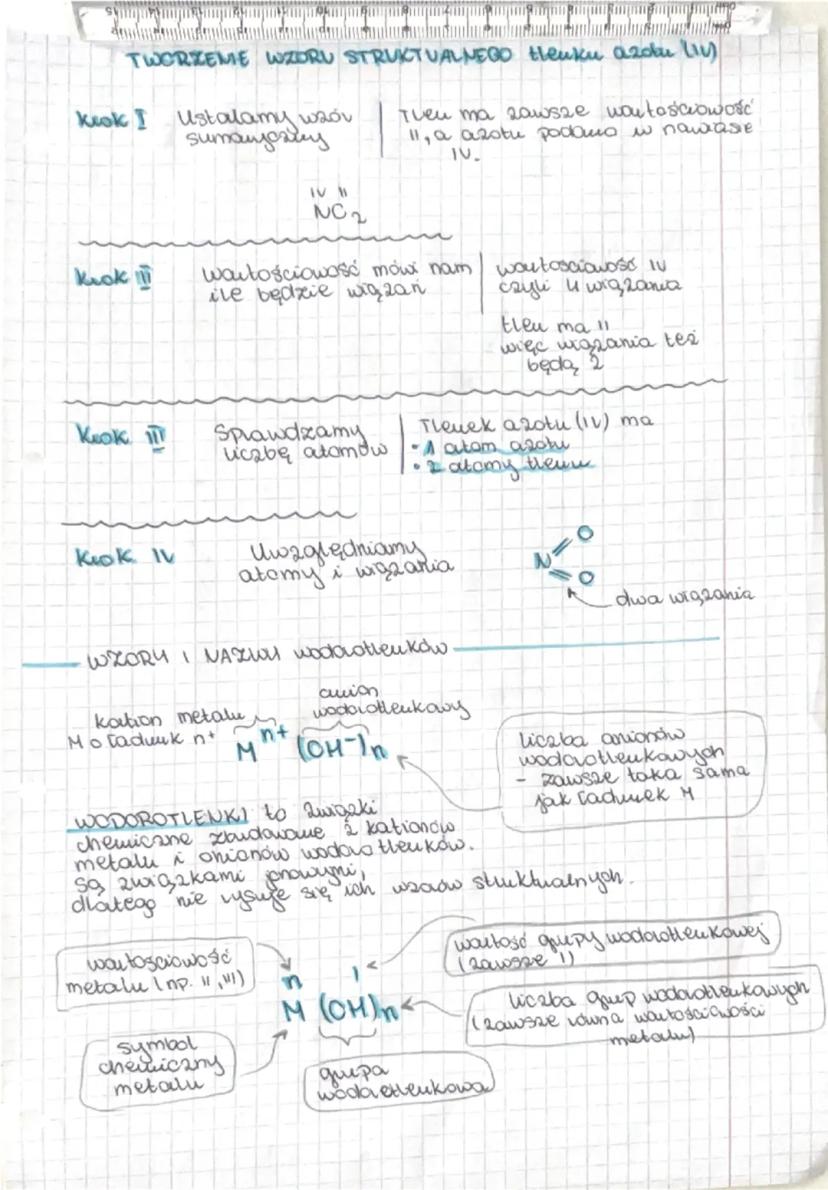 TWORZENIE WZORU STRUKTUALNEGO tlenku azotu (IV)
Krok I
Ustalamy wzór
sumaryczny
Tlen ma zawsze wartościowość
II, a azotu podano w nawiasie
IV.
IV II
NO2
Krok II
Wartościowość mówi nam
ile będzie wiązań
wartosciowość IV
czyli 4 wiązania
tlen ma II
więc wiązania też
będą 2
Krok III
Sprawdzamy
liczbę atomów
Tlenek azotu (IV) ma
• 1 atom azotu
• 2 atomy tlenu
Krok IV
Uwzględniamy
atomy i wiązania
O
N
O
dwa wiązania
WZORY I NAZWY wodorotlenków
kation metalu
M o ładunk n+
anion
wodorotlenkowy
M n+ (OH-)n
liczba anionów
wodorotlenkowych
- zawsze taka sama
jak ładunek M
WODOROTLENKI to związki
chemiczne zbudowane z kationów
metalu i anionów wodorotlenków.
Są związkami jonowymi,
dlatego nie rysuje się ich wzorów struktualnych.
wartościowość
metalu (np. II, III)
wartość grupy wodorotlenkowej
(zawsze I)
n I
M (OH)n
liczba grup wodorotlenkowych
(zawsze równa wartościowości
metalu)
symbol
chemiczny
metalu
grupa
wodorotlenkowa